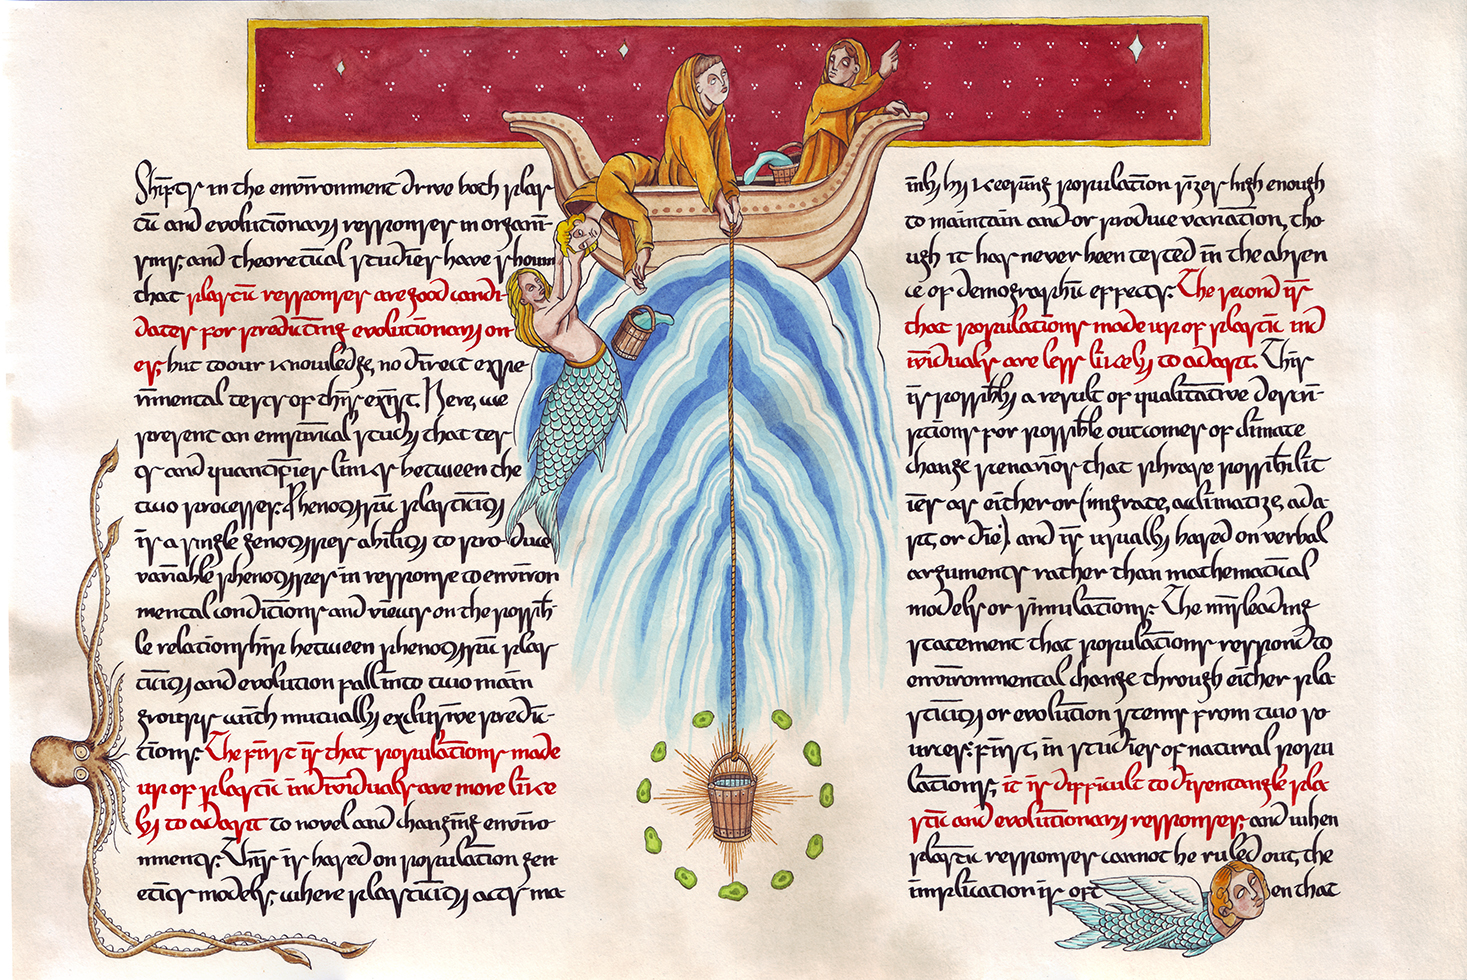 Shifts in the environment drive both plas
tic and evolutionary responses in organi-
sms, and theoretical studies have shown
that plastic responses are good candi-
dates for predicting evolutionary on
es, but to our knowledge, no direct expe-
rimental tests of this exist. Here, we
present an empirical study that tes
ts and quantifies links between the
two processes. Phenotypic plasticity
is a single genotypes ability to pro-duce
variable phenotypes in response to environ
mental conditions and views on the possib-
le relationship between phenotypic plas
ticity and evolution fall into two main
groups with mutually exclusive predic-
tions. The first is that populations made
up of plastic individuals are more like
ly to adapt to novel and changing enviro-
nments. This is based on population gen
etics models, where plasticity acts ma
inly by keeping population sizes high enough
to maintain and or produce variation, tho-
ugh it has never been tested in the absen
ce of demographic effects. The second is
that populations made up of plastic ind
ividuals are less likely to adapt. This
is possibly a result of qualitative descri-
ptions for possible outcomes of climate
change scenarios that phrase possibilit
ies as either or (migrate, acclimatize, ada-
pt, or die) and is usually based on verbal
arguments rather than mathematical
models or simulations. The misleading
statement that populations respond to
environmental change through either pla-
sticity or evolution stems from two so-
urces: first, in studies of natural popu
lations, it is difficult to disentangle pla
stic and evolutionary responses, and when
plastic responses cannot be ruled out, the
implication is often that